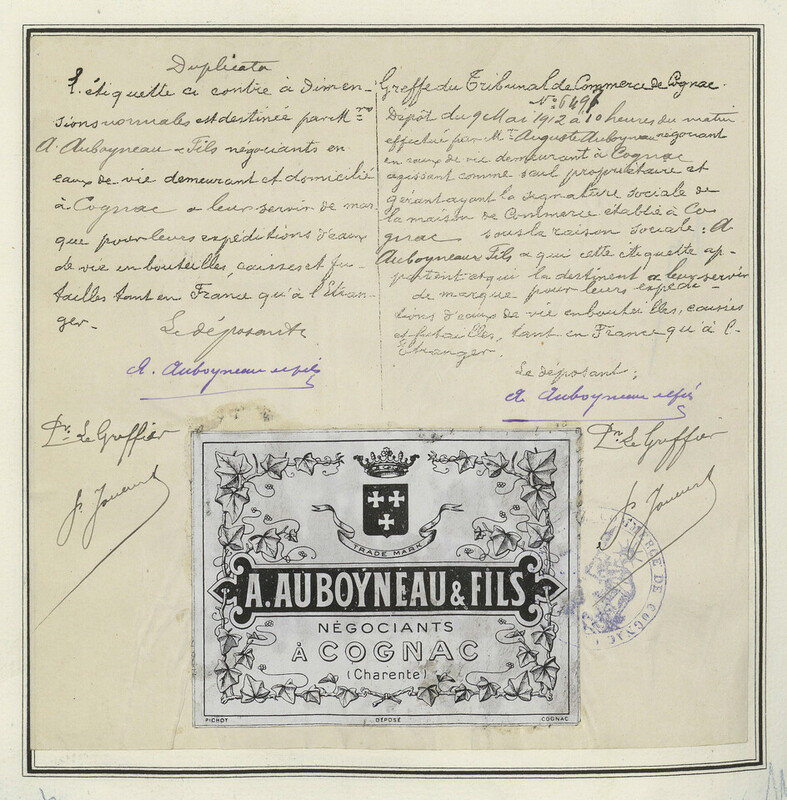 Duplicata
L'étiquette ci contre à dimen-
sions normales est destinée par M rs
A. Auboyneau & Fils négociants en
eaux de vie demeurant et domicilié
à Cognac a leur servir de mar
que pour leurs expéditions d'eaux
de vie en bouteilles, caisses et fu-
tailles tant en France qu'à l'Etran-
ger-
Le déposant
A. Auboyneau et fils
Pr. Le Greffier
Greffe du Tribunal de Commerce de Cognac.
Dépôt du 9 Mai 1912 à 10 heures du matin
effectué par Mr. Auguste Auboyneau négociant
en eaux de vie demeurant à Cognac
agissant comme seul propriétaire et
gérant ayant la signature sociale de
la maison de Commerce établie à Co
gnac sous la raison sociale: A
Auboyneau Fils a qui cette étiquette ap-
partient et qui la destinent a leur servir
de marque pour leurs expédi-
tions d'eaux de vie en bouteilles, caisses
et futailles, tant en France qu'à l'
Etranger-
Le déposant;
A Auboyneau et fils
Pr. Le Greffier
TRADE MARK
A. AUBOYNEAU & FILS
NÉGOCIANTS
À COGNAC
(Charente)
PICHOT DÉPOSÉ COGNAC
MERCE DE COGNAC